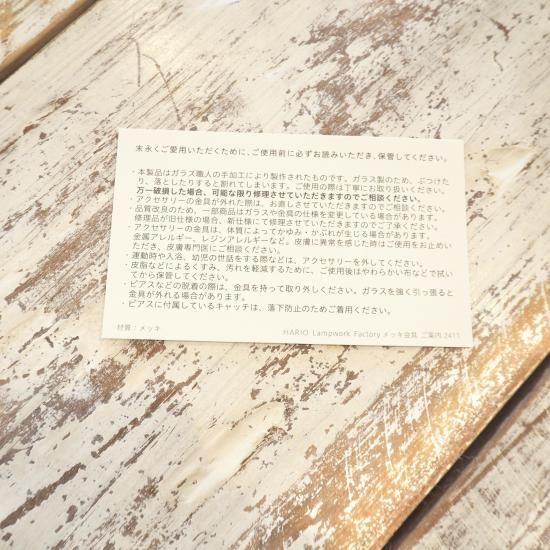 末永くご愛用いただくために、ご使用前に必ずお読みいただき、保管してください。
・本製品はガラス職人の手加工により製作されたものです。ガラス製のため、ぶつけた
り、落としたりすると割れてしまいます。ご使用の際は丁寧にお取り扱いください。
万一破損した場合、可能な限り修理させていただきますのでご相談ください。
・アクセサリーの金具が外れた際は、お直しさせていただきますのでご相談ください。
・品質改良のため、一部商品はガラスや金具の仕様を変更している場合があります。
修理品が旧仕様の場合、新仕様にて修理させていただきますのでご了承ください。
・アクセサリーの金具は、体質によってかゆみ・かぶれが生じる場合があります。
金属アレルギー、レジンアレルギーなど。皮膚に異常を感じた時はご使用をお止めい
ただき、皮膚専門医にご相談ください。
・運動時や入浴、幼児の世話をする際などは、アクセサリーを外してください。
・皮脂などによるくすみ、汚れを軽減するために、ご使用後はやわらかい布などで拭い
てから保管してください。
・ピアスなどの脱着の際は、金具を持って取り外しください。ガラスを強く引っ張ると
金具が外れる場合があります。
・ピアスに付属しているキャッチは、落下防止のためご着用ください。
材質：メッキ
HARIO Lampwork Factory メッキ金具 ご案内 2411